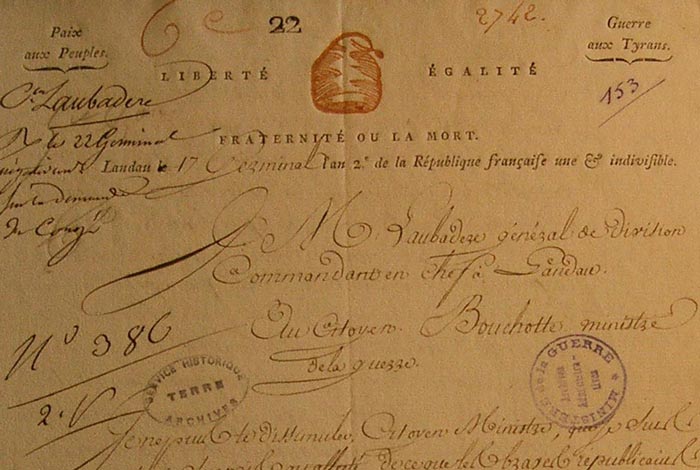 Paix
aux Peuples.
22
2742.
Guerre
aux Tyrans.
LIBERTÉ ÉGALITÉ
153
Cen Laubadere
FRATERNITÉ OU LA MORT.
R le 22 Germinal
Landau le 17 Germinal l'an 2.e de la République françaiſe une & indiviſible.
sur la demande
de Congé
J. M. Laubadere général de Division
Commandant en chef à Landau.
N° 386
Au Citoyen Bouchotte ministre
de la guerre.
SERVICE HISTORIQUE
TERRE
ARCHIVES
MINISTÈRE de la GUERRE
Archives
2.e D
Je ne puis te dissimuler, Citoyen Ministre, que je suis